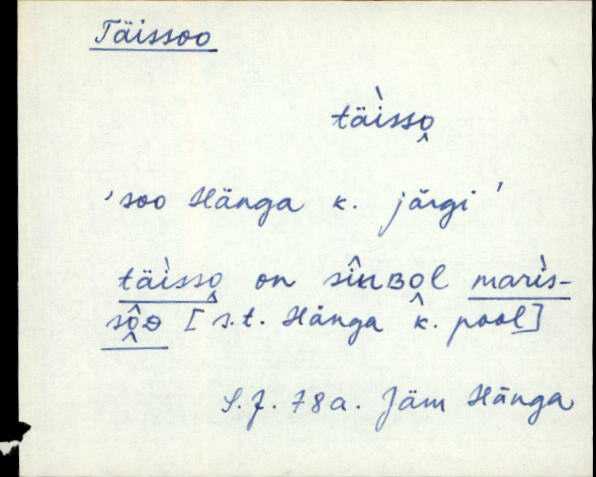 Täissoo
täì̬sso̭
'soo Hänga k. järgi'
täìsso̭ on sînʙol marìs-
sô̭ə [s.t. Hänga k. pool]
S.J. 78a. Jäm Hänga